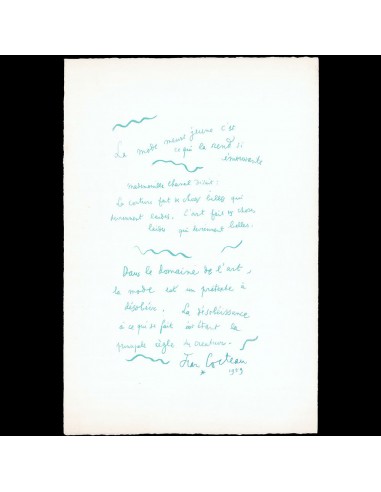 La mode meurt jeune c'est
ce qui la rend si
émouvante
Mademoiselle Chanel disait :
la couture fait des choses belles qui
deviennent laides. L'art fait des choses
laides qui deviennent belles.
Dans le domaine de l'art,
la mode est un prétexte à
désobéir. La désobéissance
à ce qui se fait étant la
principale règle des créateurs.
Jean Cocteau
* 1959